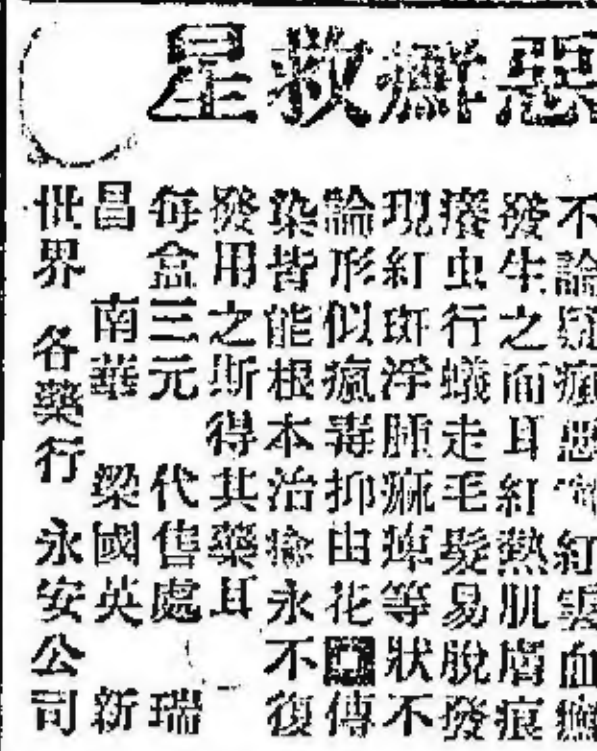 惡癬救星
不論疑瘋惡 紅 血癬
發生之面耳紅熱肌膚痕
癢虫行蟻走毛髮易脫發
現紅斑浮腫痲痺等狀不
論形似瘋毒抑由花 傳
染皆能根本治療永不復
發用之斯得其藥耳
每盒三元 代售處 瑞
昌 南華 梁國英 新
世界 各藥行 永安公司